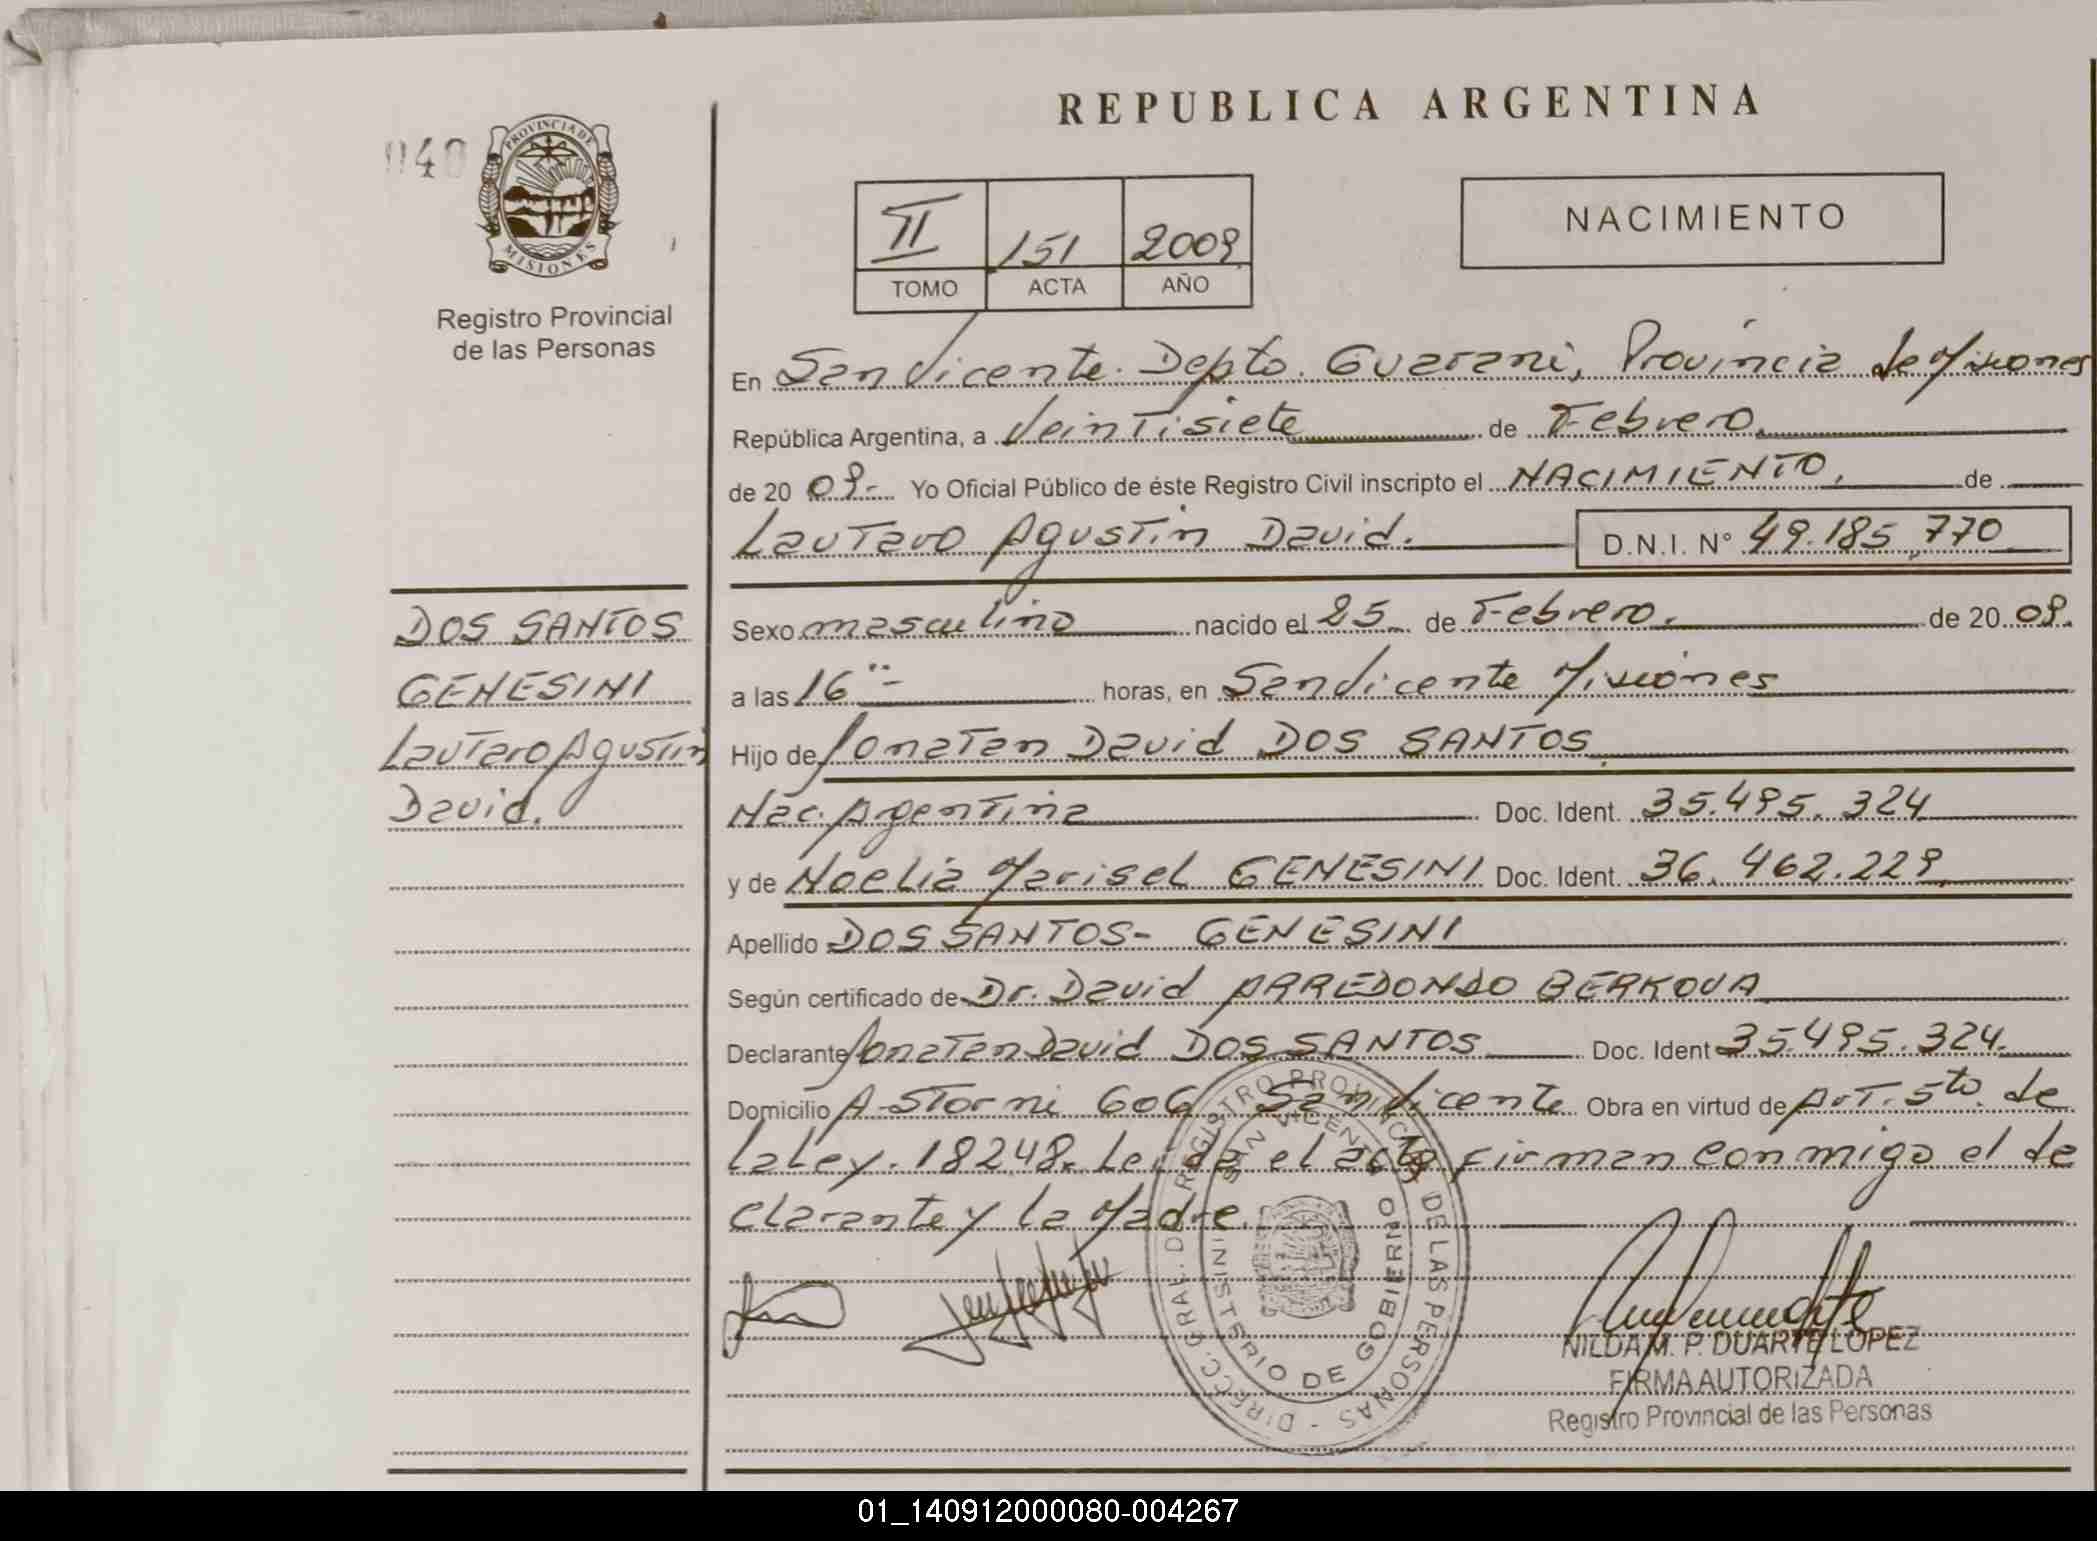 REPUBLICA ARGENTINA
040
PROVINCIA DE
MISIONES
Registro Provincial
de las Personas
II 151 2009
TOMO ACTA AÑO
NACIMIENTO
En San Vicente. Depto. Guarani, Provincia de Misiones
República Argentina, a Veintisiete de Febrero.
de 20 09.- Yo Oficial Público de éste Registro Civil inscripto el NACIMIENTO. de
Lautaro Agustin David. D.N.I. N° 49.185.770
DOS SANTOS
GENESINI
Lautaro Agustin
David.
Sexo masculino nacido el 25 de Febrero. de 20 09.
a las 16 horas, en San Vicente Misiones
Hijo de Jonatan David DOS SANTOS
Nac. Argentina Doc. Ident. 35.495.324
y de Noelia Marisel GENESINI Doc. Ident. 36.462.229
Apellido DOS SANTOS- GENESINI
Según certificado de Dr. David ARREDONDO BERKOVA
Declarante Jonatan David DOS SANTOS Doc. Ident 35.495.324.
Domicilio A. Storni 606 San Vicente Obra en virtud de Art. 5to. de
la Ley. 18248. Leida el acta firman conmigo el de
clarante y la Madre.
DIRECC. GRAL. DE REGISTRO PROVINCIAL DE LAS PERSONAS -
SAN VICENTE
MINISTERIO DE GOBIERNO
NILDA M. P. DUARTE LOPEZ
FIRMA AUTORIZADA
Registro Provincial de las Personas
01_140912000080-004267